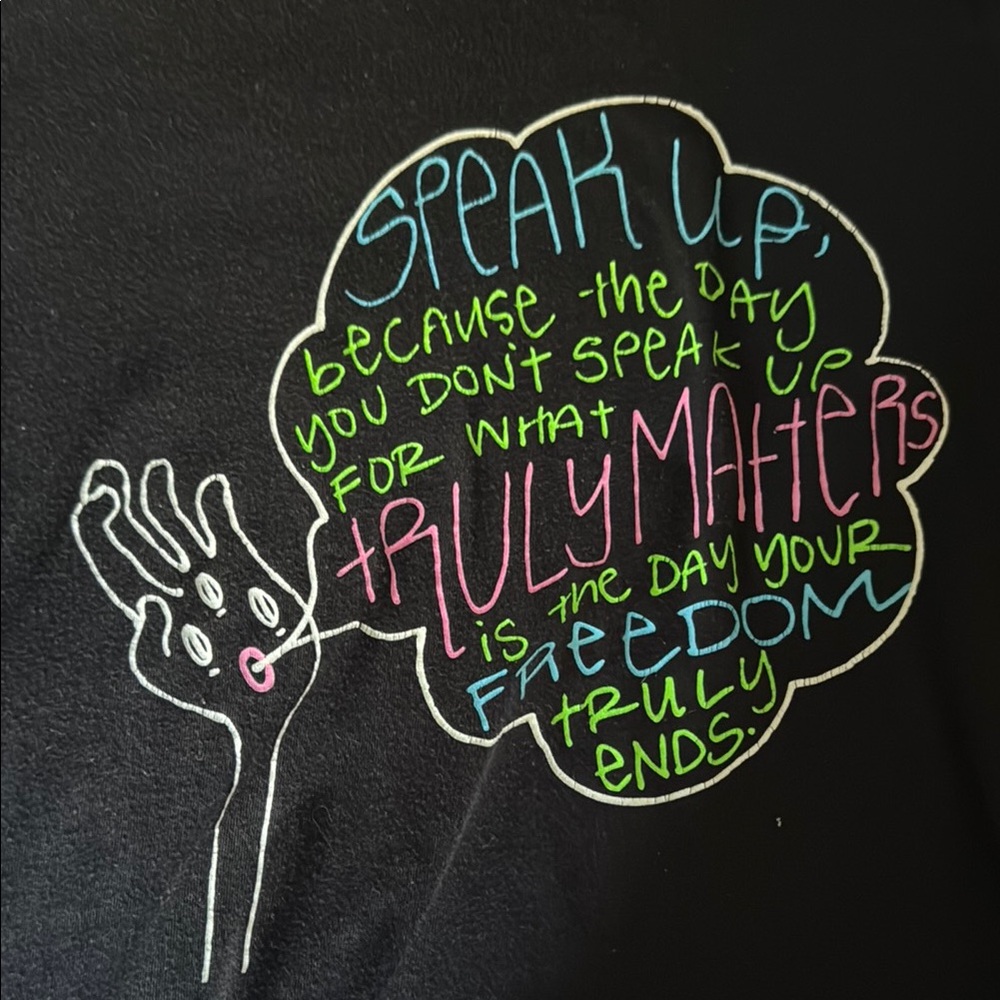 SPEAK UP,
because the DAY
YOU DON'T SPEAK UP
FOR WHAT
tRULY MATTERS
is the DAY YOUR
FREEDOM
tRULY
ENDS.